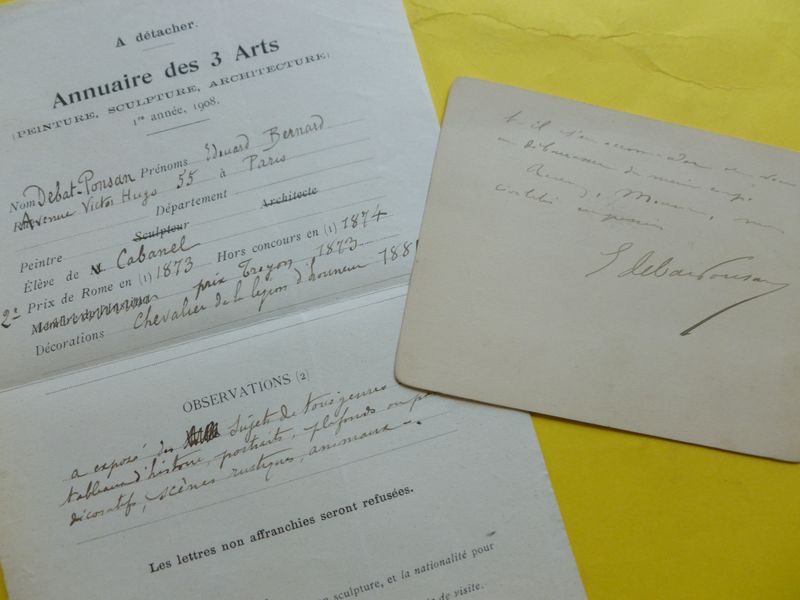 A détacher.
Annuaire des 3 Arts
(PEINTURE, SCULPTURE, ARCHITECTURE)
1re année, 1908.
Nom Debat-Ponsan Prénoms Edouard Bernard
Avenue Victor Hugo 55 à Paris
Département
Peintre Sculpteur Architecte
Élève de Cabanel
2e Prix de Rome en (1) 1873 Hors concours en (1) 1874
prix Troyon. 1873
Décorations Chevalier de la légion d'honneur 1881
OBSERVATIONS (2)
a exposé des sujets de tous genres
tableaux d'histoire, portraits, plafonds ou
décoratifs, scènes rustiques, animaux.
Les lettres non affranchies seront refusées.
sculpture, et la nationalité pour
de visite.
s'en accommoder
Monsieur, mes
E Debat-Ponsan